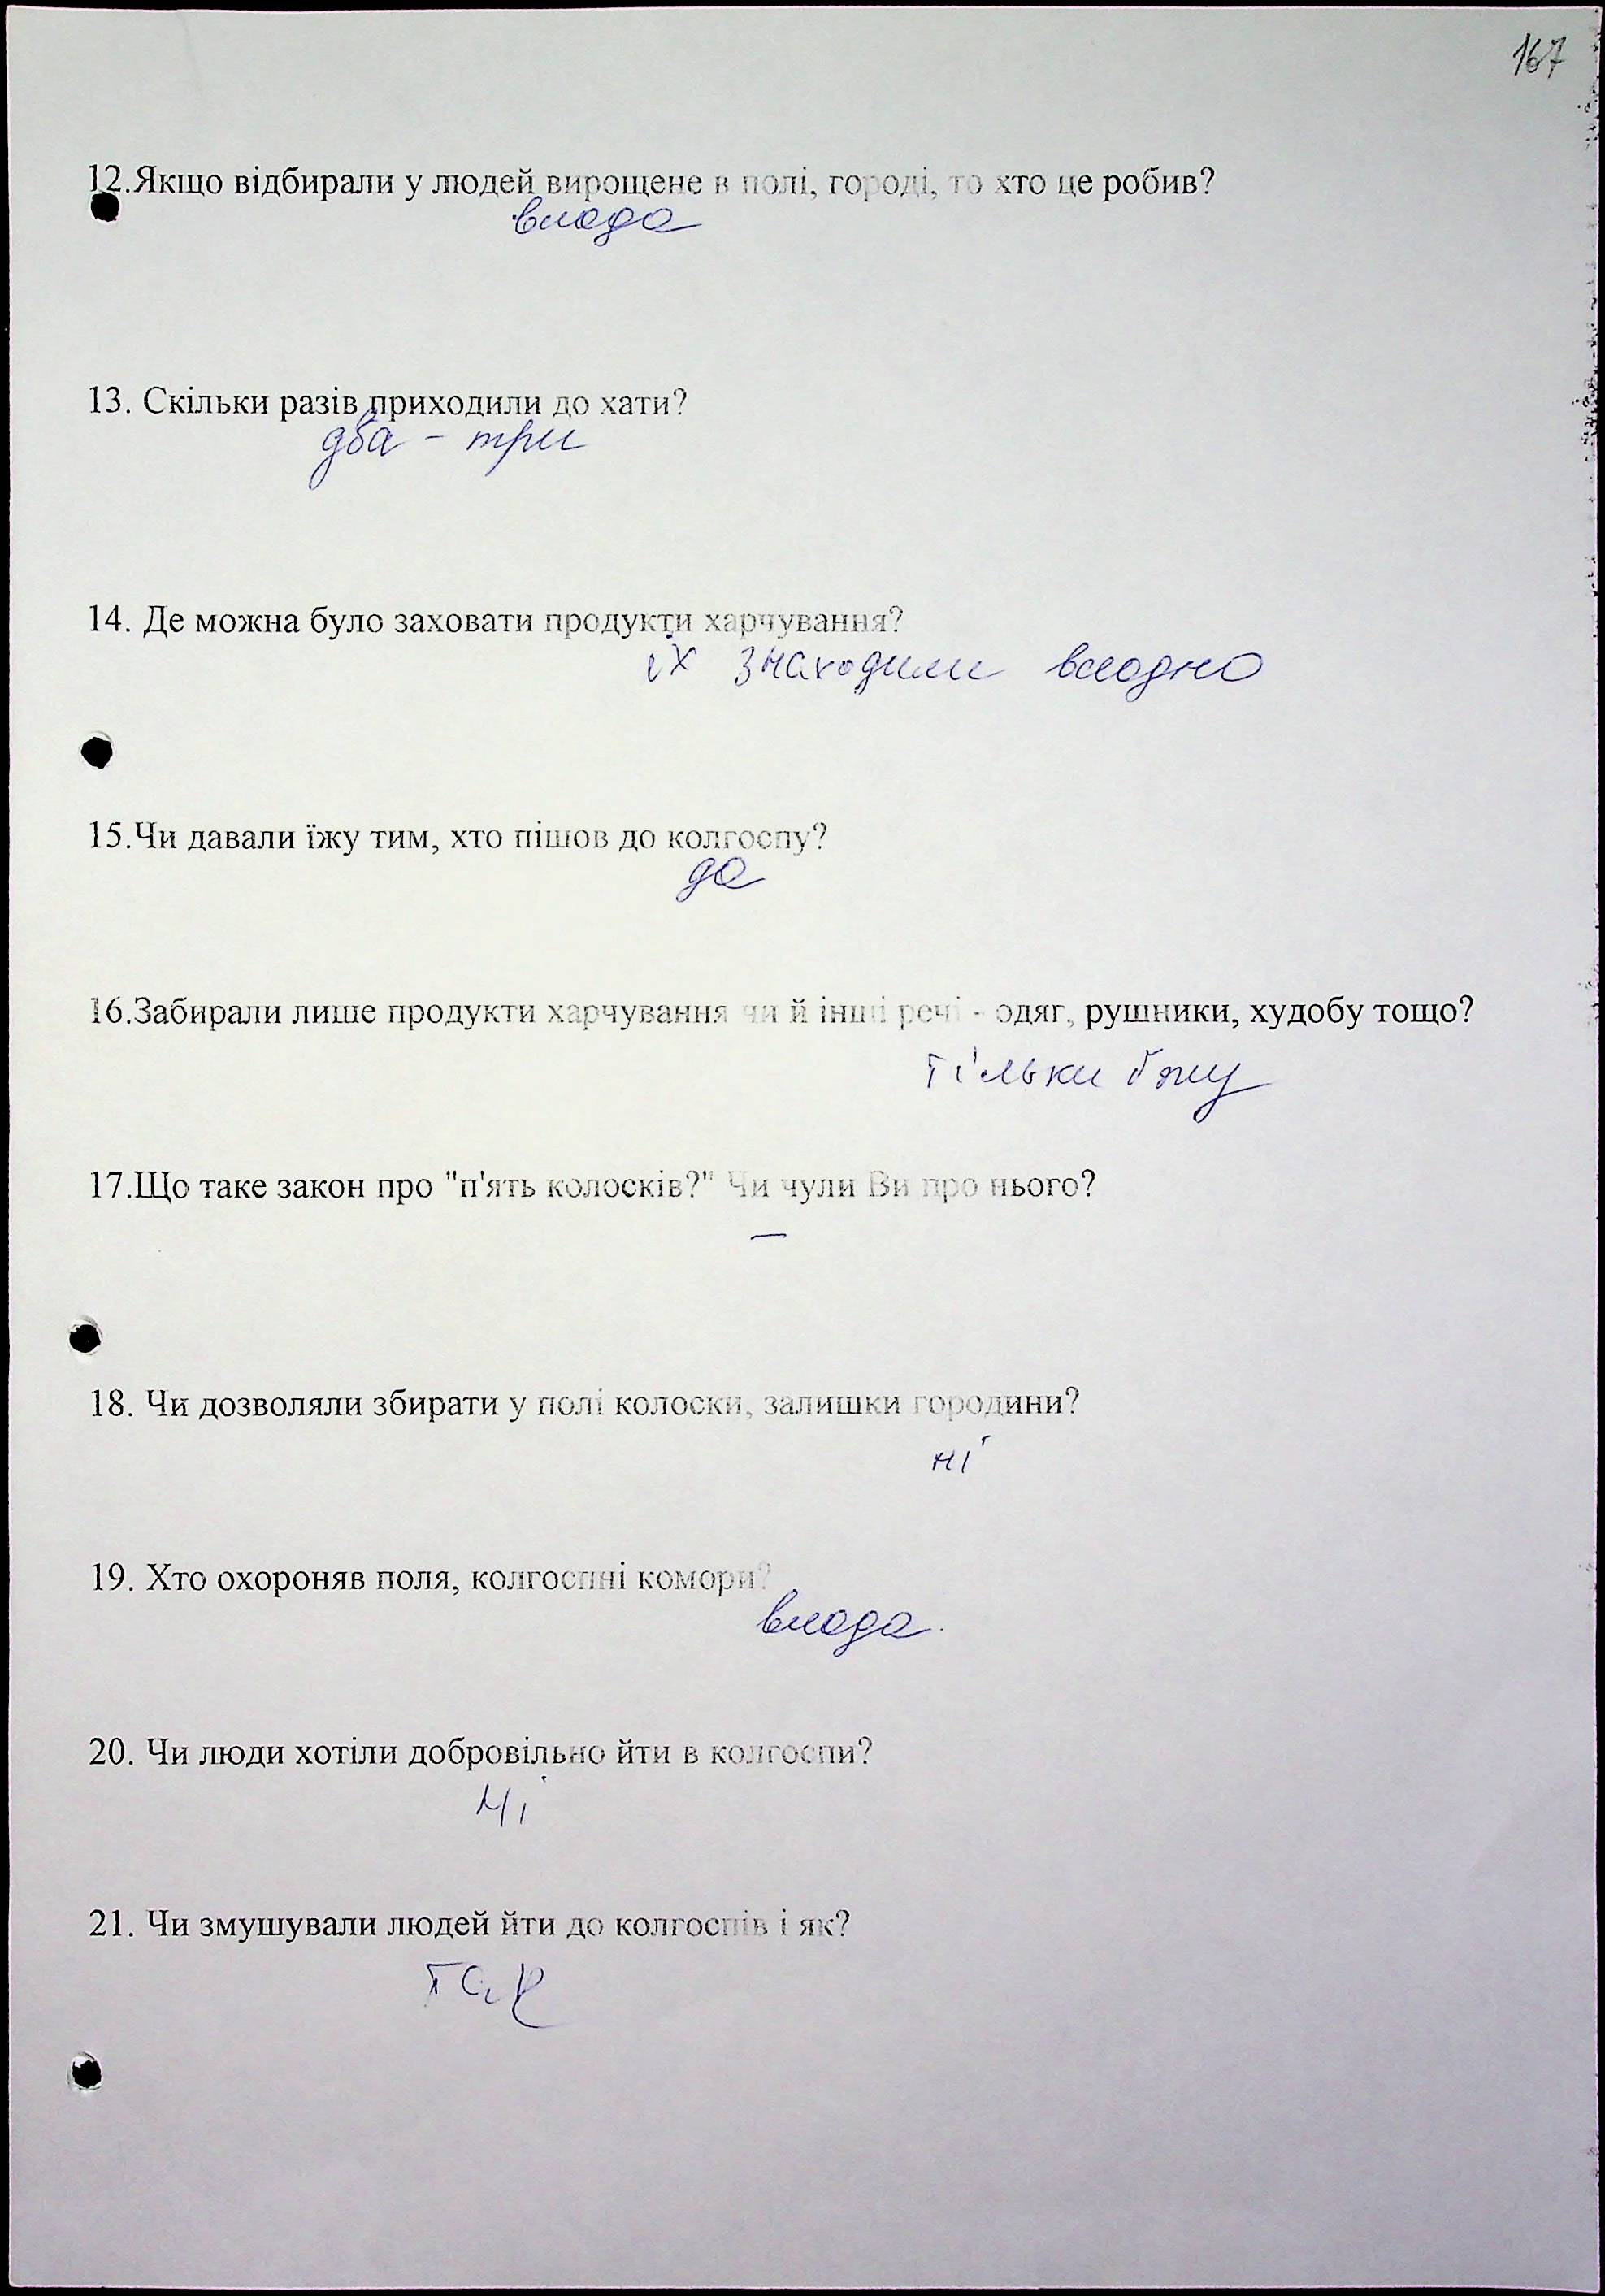 167
12.Якщо відбирали у людей вирощене в полі, городі, то хто це робив?
влада
13. Скільки разів приходили до хати?
два - три
14. Де можна було заховати продукти харчування?
їх знаходили всеодно
15.Чи давали їжу тим, хто пішов до колгоспу?
да
16.Забирали лише продукти харчування чи й інші речі - одяг, рушники, худобу тощо?
тільки їжу
17.Що таке закон про "п'ять колосків?" Чи чули Ви про нього?
—
18. Чи дозволяли збирати у полі колоски, залишки городини?
ні
19. Хто охороняв поля, колгоспні комори?
влада.
20. Чи люди хотіли добровільно йти в колгоспи?
Ні
21. Чи змушували людей йти до колгоспів і як?
так